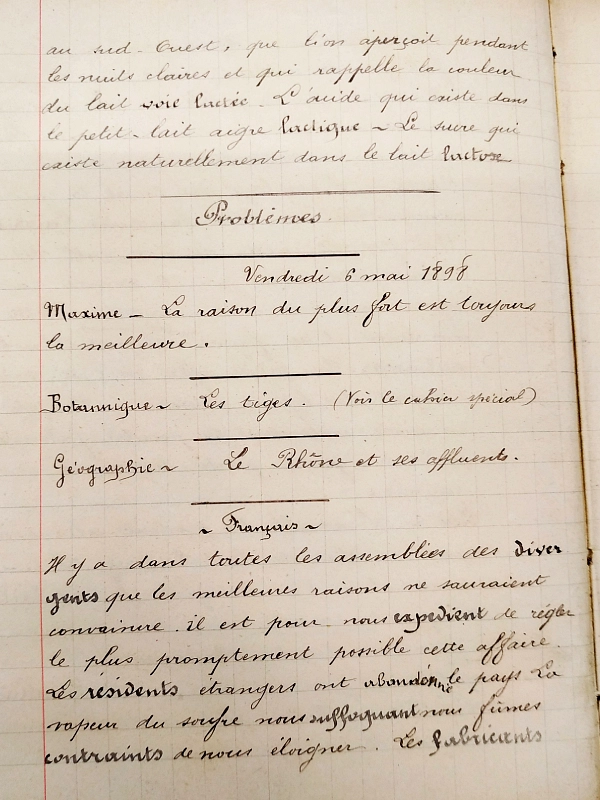 au sud-Ouest, que l'on aperçoit pendant
les nuits claires et qui rappelle la couleur
du lait voie lactée. L'acide qui existe dans
le petit-lait aigre lactique - Le sucre qui
existe naturellement dans le lait lactose
Problèmes.
Vendredi 6 mai 1898
Maxime - La raison du plus fort est toujours
la meilleure.
Botannique - Les tiges. (Voir le cahier spécial)
Géographie - Le Rhône et ses affluents.
- Français -
Il y a dans toutes les assemblées des diver
gents que les meilleures raisons ne sauraient
convaincre. il est pour nous expedient de régler
le plus promptement possible cette affaire.
Les résidents étrangers ont abandonné le pays La
vapeur du soufre nous suffoquant nous fûmes
contraints de nous éloigner. Les fabricants